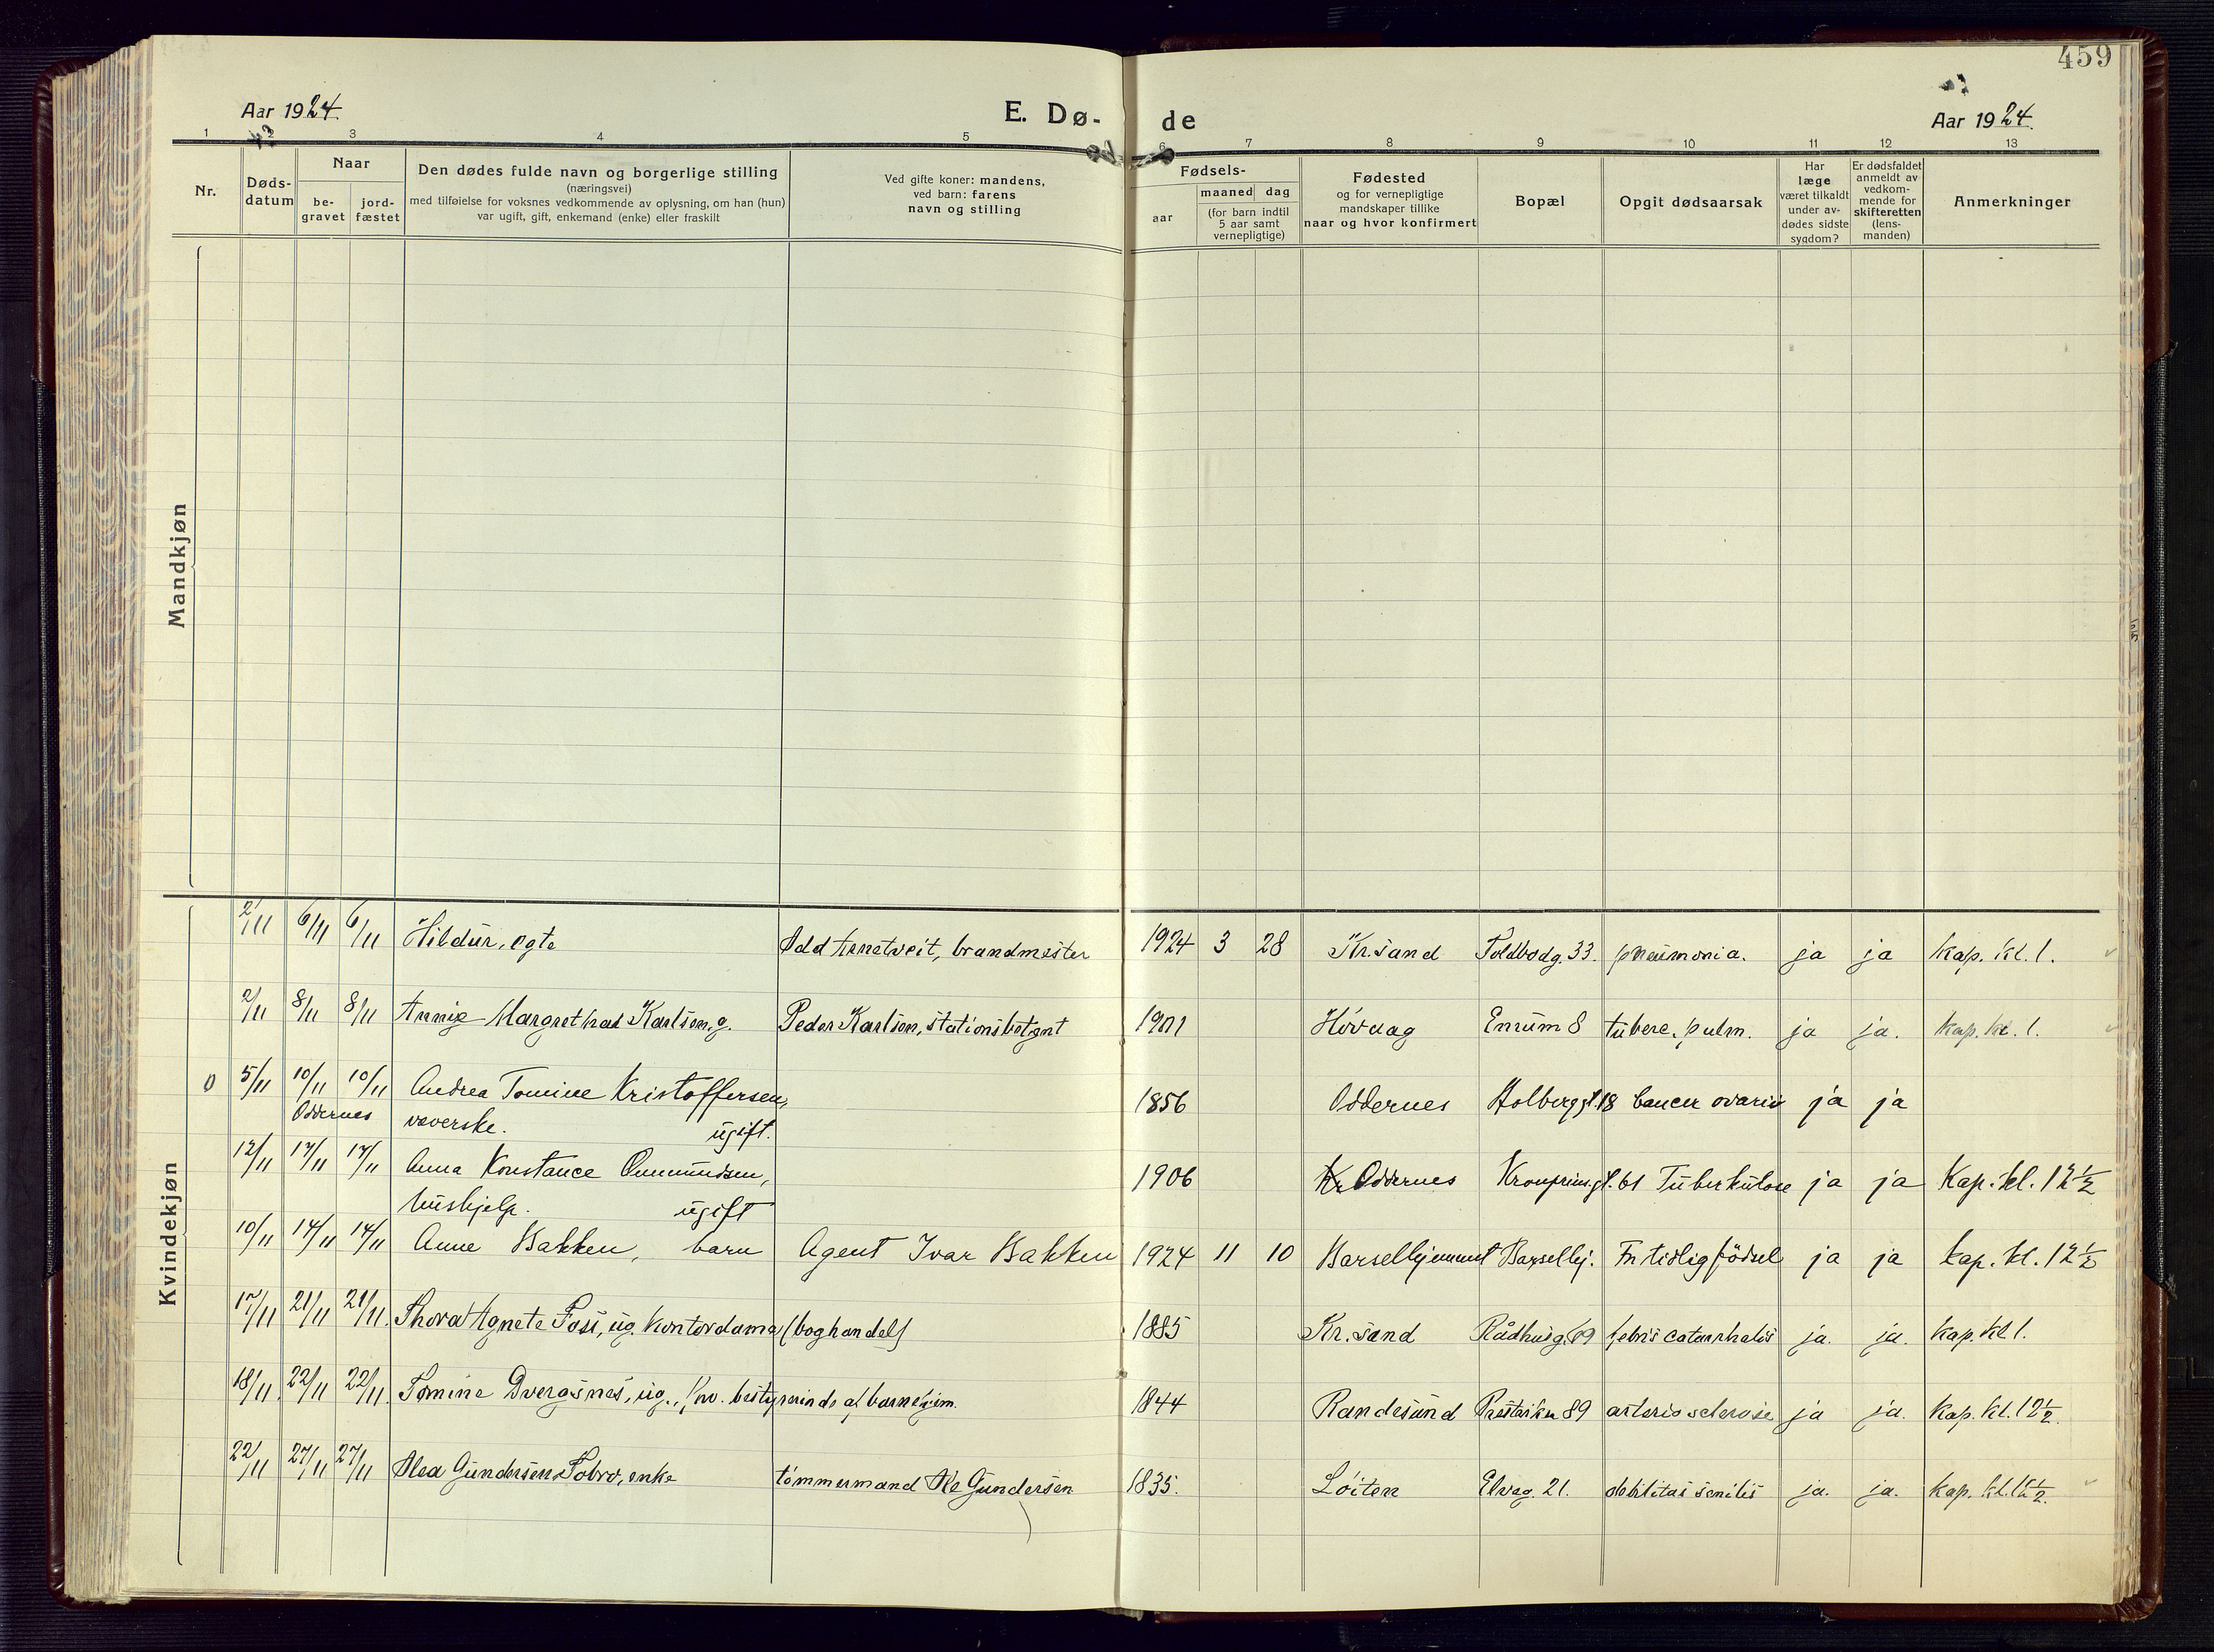 459
Aar 1924.
E. Dø-
de
Aar 1924.
1 2 3 4 5 6 7 8 9 10 11 12 13
Nr.
Døds-
datum
Naar
be-
gravet
jord-
fæstet
Den dødes fulde navn og borgerlige stilling
(næringsvei)
med tilføielse for voksnes vedkommende av oplysning, om han (hun)
var ugift, gift, enkemand (enke) eller fraskilt
Ved gifte koner: mandens,
ved barn: farens
navn og stilling
Fødsels-
aar
maaned dag
(for barn indtil
5 aar samt
vernepligtige)
Fødested
og for vernepligtige
mandskaper tillike
naar og hvor konfirmert
Bopæl
Opgit dødsaarsak
Har
læge
været tilkaldt
under av-
dødes sidste
sygdom?
Er dødsfaldet
anmeldt av
vedkom-
mende for
skifteretten
(lens-
manden)
Anmerkninger
Mandkjøn
Kvindekjøn
2/11 6/11 6/11 Hildur, egte Odd Arnetveit, brandmester 1924 3 28 Kr.sand Toldbodg. 33. pneumonia. ja ja kap. kl. 1.
2/11 8/11 8/11 Annie Margrethas Karlsen, g. Peder Karlsen, stationsbetjent 1901 Hövaag Enrum 8 tuberc. pulm. ja ja. kap. kl. 1.
0 5/11 10/11 10/11 Andrea Tomine Kristoffersen, 1856 Oddernes Holbergst. 18 Cancer ovarii ja ja
Oddernes væverske. ugift.
12/11 17/11 17/11 Anna Konstance Gunnundsen, 1906 Oddernes Kronprinsgt. 61 Tuberkulose ja ja Kap. kl. 12 1/2
hushjelp. ugift
10/11 14/11 14/11 Anne Bakken, barn Agent Ivar Bakken 1924 11 10 Barselhjemmet Barselhj. For tidlig födsel ja ja kap. kl. 12 1/2
17/11 21/11 21/11. Thora Agnete Foss, ug. kontordame (boghandel) 1885 Kr.sand Rådhusg. 69 febris catarrhalis ja. ja. kap. kl 1.
18/11 22/11 22/11. Tomine Dvergsnes, ug., fhv. bestyrerinde af barnehjem. 1844 Randesund Præsteiken 89 arteriosclerose ja ja. kap. kl. 12 1/2.
22/11 27/11 27/11 Olea Gundersen Sobro, enke tömmermand Ole Gundersen 1835. Löiten Elveg. 21. debilitas senilis ja. ja. kap. kl. 12 1/2.